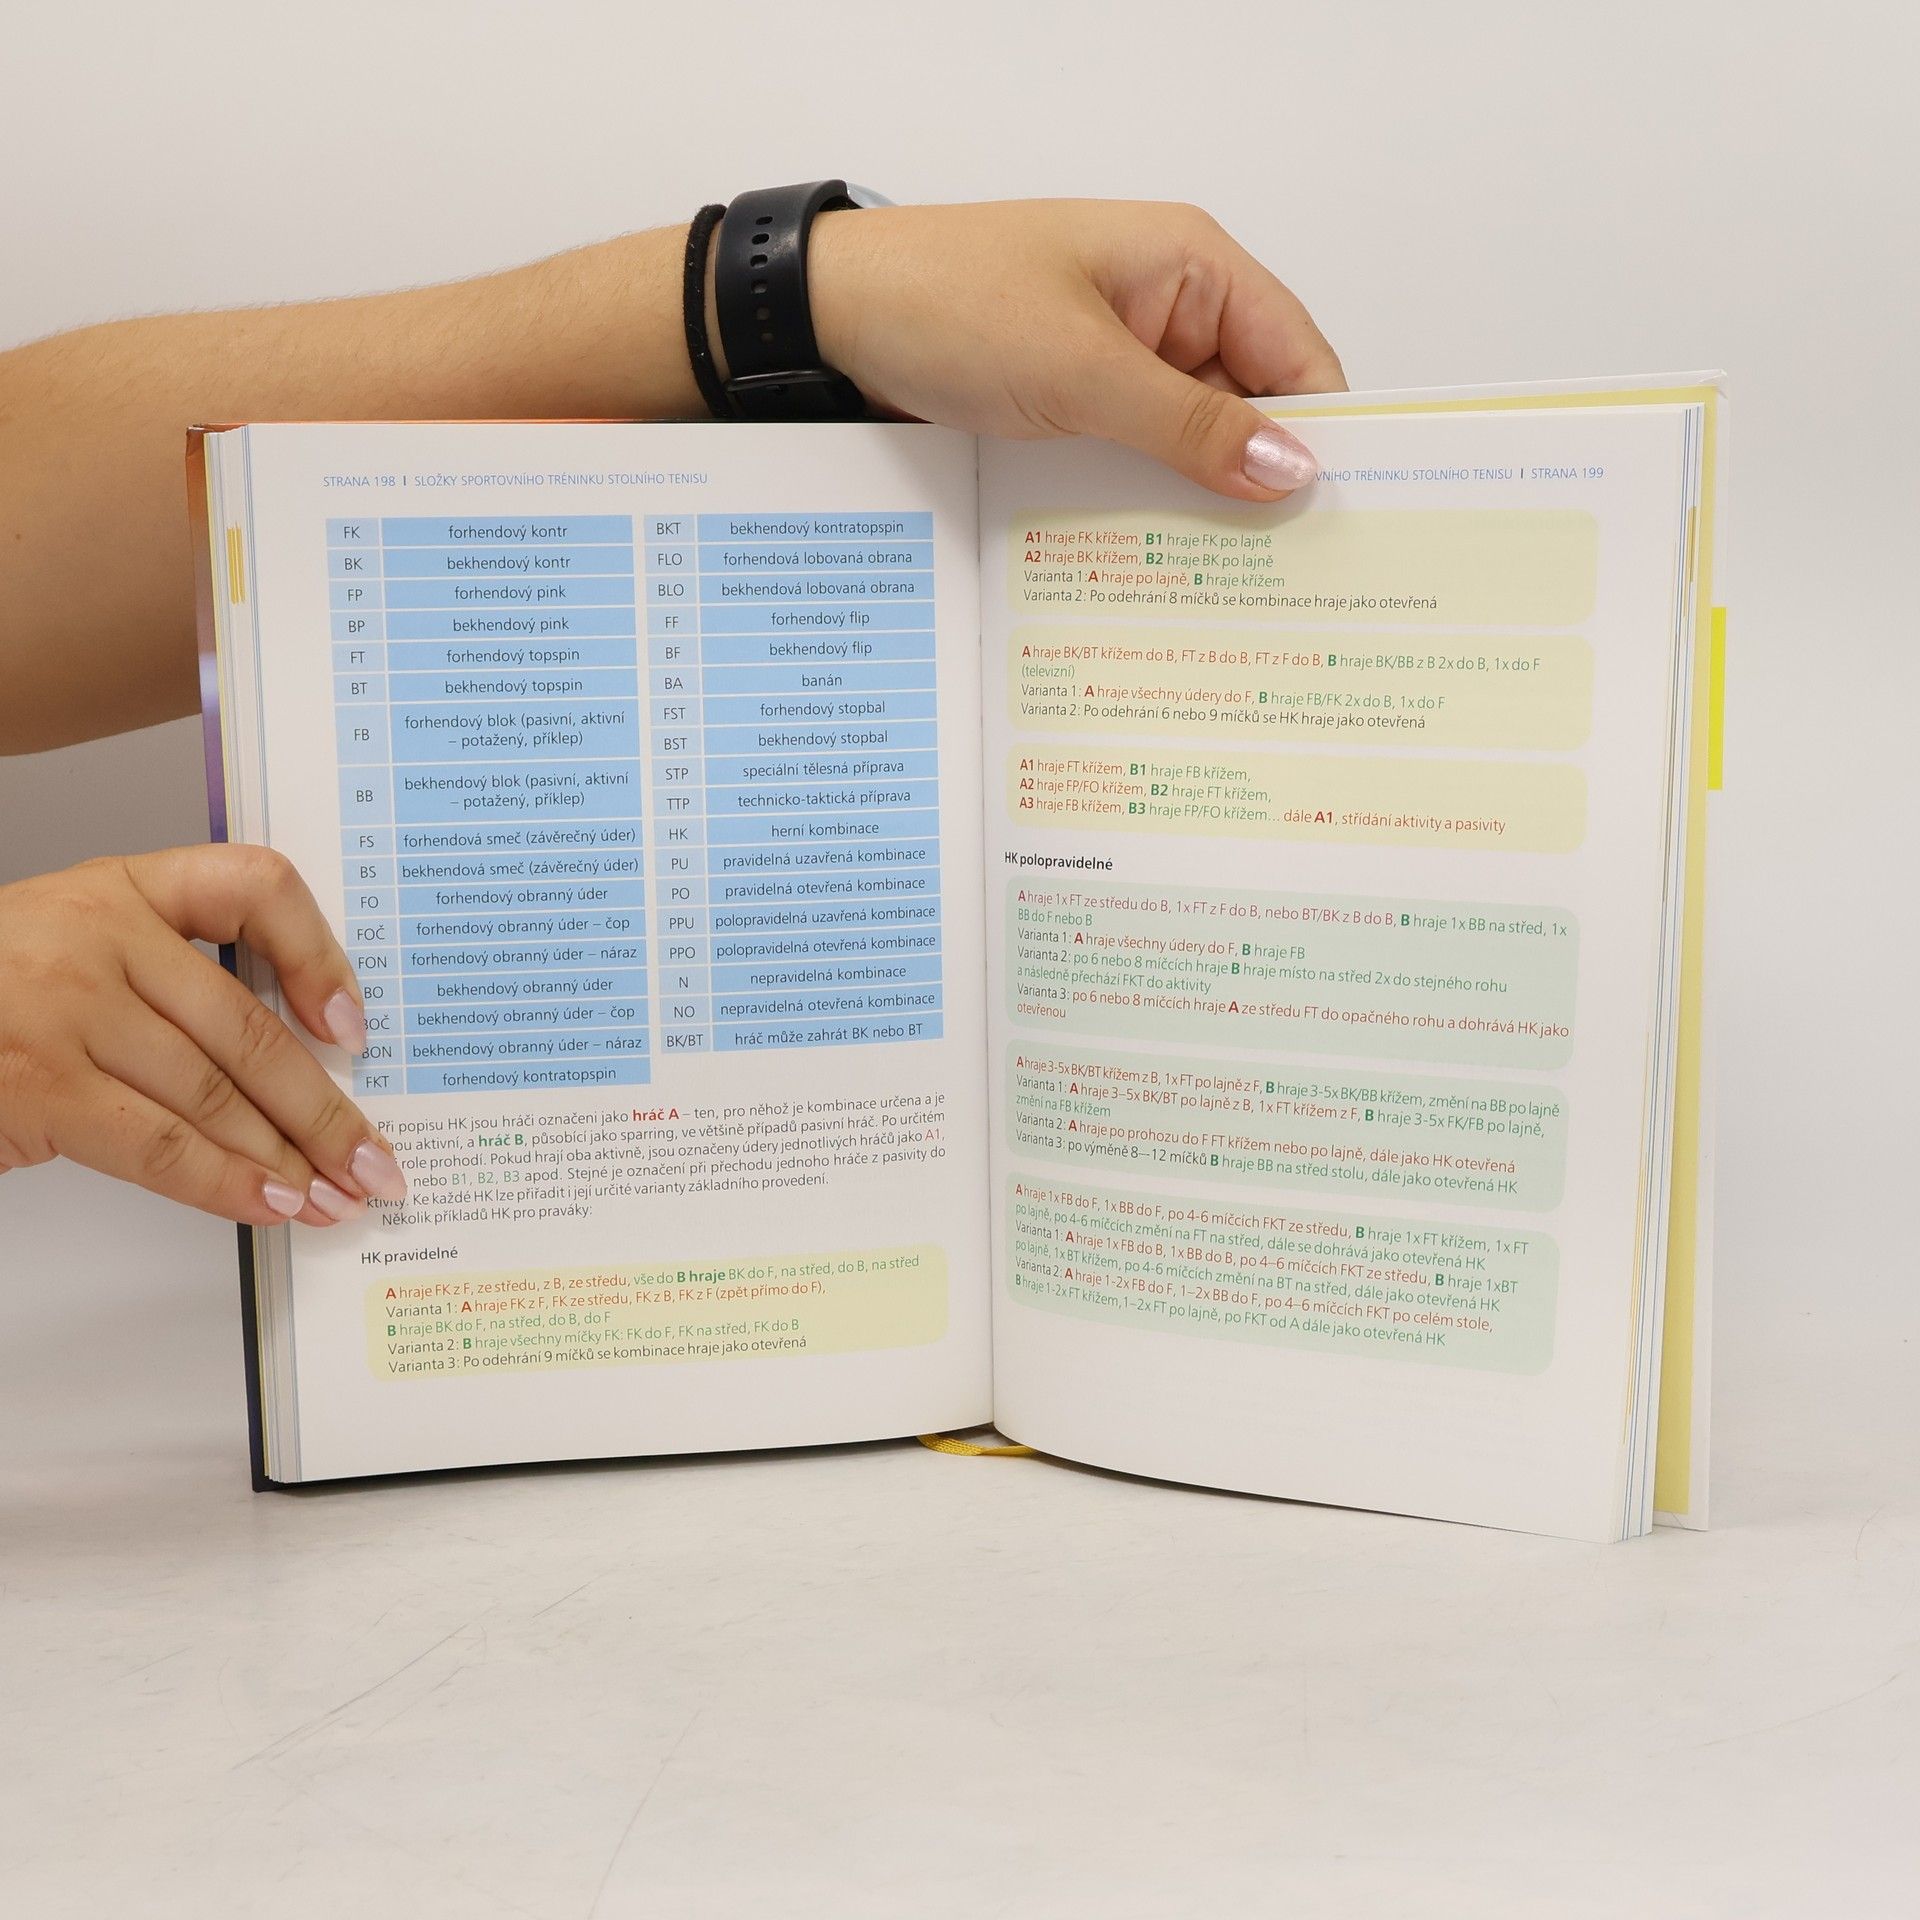 STRANA 198 I SLOŽKY SPORTOVNÍHO TRÉNINKU STOLNÍHO TENISU
FK forhendový kontr
BK bekhendový kontr
FP forhendový pink
BP bekhendový pink
FT forhendový topspin
BT bekhendový topspin
FB forhendový blok (pasivní, aktivní
– potažený, příklep)
BB bekhendový blok (pasivní, aktivní
– potažený, příklep)
FS forhendová smeč (závěrečný úder)
BS bekhendová smeč (závěrečný úder)
FO forhendový obranný úder
FOČ forhendový obranný úder – čop
FON forhendový obranný úder – náraz
BO bekhendový obranný úder
BOČ bekhendový obranný úder – čop
BON bekhendový obranný úder – náraz
FKT forhendový kontratopspin
BKT bekhendový kontratopspin
FLO forhendová lobovaná obrana
BLO bekhendová lobovaná obrana
FF forhendový flip
BF bekhendový flip
BA banán
FST forhendový stopbal
BST bekhendový stopbal
STP speciální tělesná příprava
TTP technicko-taktická příprava
HK herní kombinace
PU pravidelná uzavřená kombinace
PO pravidelná otevřená kombinace
PPU polopravidelná uzavřená kombinace
PPO polopravidelná otevřená kombinace
N nepravidelná kombinace
NO nepravidelná otevřená kombinace
BK/BT hráč může zahrát BK nebo BT
Při popisu HK jsou hráči označeni jako hráč A – ten, pro něhož je kombinace určena a je
aktivní, a hráč B, působící jako sparring, ve většině případů pasivní hráč. Po určitém
role prohodí. Pokud hrají oba aktivně, jsou označeny údery jednotlivých hráčů jako A1,
nebo B1, B2, B3 apod. Stejné je označení při přechodu jednoho hráče z pasivity do
ktivity. Ke každé HK lze přiřadit i její určité varianty základního provedení.
Několik příkladů HK pro praváky:
HK pravidelné
A hraje FK z F, ze středu, z B, ze středu, vše do B hraje BK do F, na střed, do B, na střed
Varianta 1: A hraje FK z F, FK ze středu, FK z B, FK z F (zpět přímo do F),
B hraje BK do F, na střed, do B, do F
Varianta 2: B hraje všechny míčky FK: FK do F, FK na střed, FK do B
Varianta 3: Po odehrání 9 míčků se kombinace hraje jako otevřená
VNÍHO TRÉNINKU STOLNÍHO TENISU I STRANA 199
A1 hraje FK křížem, B1 hraje FK po lajně
A2 hraje BK křížem, B2 hraje BK po lajně
Varianta 1:A hraje po lajně, B hraje křížem
Varianta 2: Po odehrání 8 míčků se kombinace hraje jako otevřená
A hraje BK/BT křížem do B, FT z B do B, FT z F do B, B hraje BK/BB z B 2x do B, 1x do F
(televizní)
Varianta 1: A hraje všechny údery do F, B hraje FB/FK 2x do B, 1x do F
Varianta 2: Po odehrání 6 nebo 9 míčků se HK hraje jako otevřená
A1 hraje FT křížem, B1 hraje FB křížem,
A2 hraje FP/FO křížem, B2 hraje FT křížem,
A3 hraje FB křížem, B3 hraje FP/FO křížem... dále A1, střídání aktivity a pasivity
HK polopravidelné
A hraje 1x FT ze středu do B, 1x FT z F do B, nebo BT/BK z B do B, B hraje 1x BB na střed, 1x
BB do F nebo B
Varianta 1: A hraje všechny údery do F, B hraje FB
Varianta 2: po 6 nebo 8 míčcích hraje B hraje místo na střed 2x do stejného rohu
a následně přechází FKT do aktivity
Varianta 3: po 6 nebo 8 míčcích hraje A ze středu FT do opačného rohu a dohrává HK jako
otevřenou
A hraje 3-5x BK/BT křížem z B, 1x FT po lajně z F, B hraje 3-5x BK/BB křížem, změní na BB po lajně
Varianta 1: A hraje 3–5x BK/BT po lajně z B, 1x FT křížem z F, B hraje 3-5x FK/FB po lajně,
změní na FB křížem
Varianta 2: A hraje po prohozu do F FT křížem nebo po lajně, dále jako HK otevřená
Varianta 3: po výměně 8–-12 míčků B hraje BB na střed stolu, dále jako otevřená HK
A hraje 1x FB do F, 1x BB do F, po 4-6 míčcích FKT ze středu, B hraje 1x FT křížem, 1x FT
po lajně, po 4-6 míčcích změní na FT na střed, dále se dohrává jako otevřená HK
Varianta 1: A hraje 1x FB do B, 1x BB do B, po 4–6 míčcích FKT ze středu, B hraje 1xBT
po lajně, 1x BT křížem, po 4-6 míčcích změní na BT na střed, dále jako otevřená HK
Varianta 2: A hraje 1-2x FB do F, 1–2x BB do F, po 4–6 míčcích FKT po celém stole,
B hraje 1-2x FT křížem,1–2x FT po lajně, po FKT od A dále jako otevřená HK